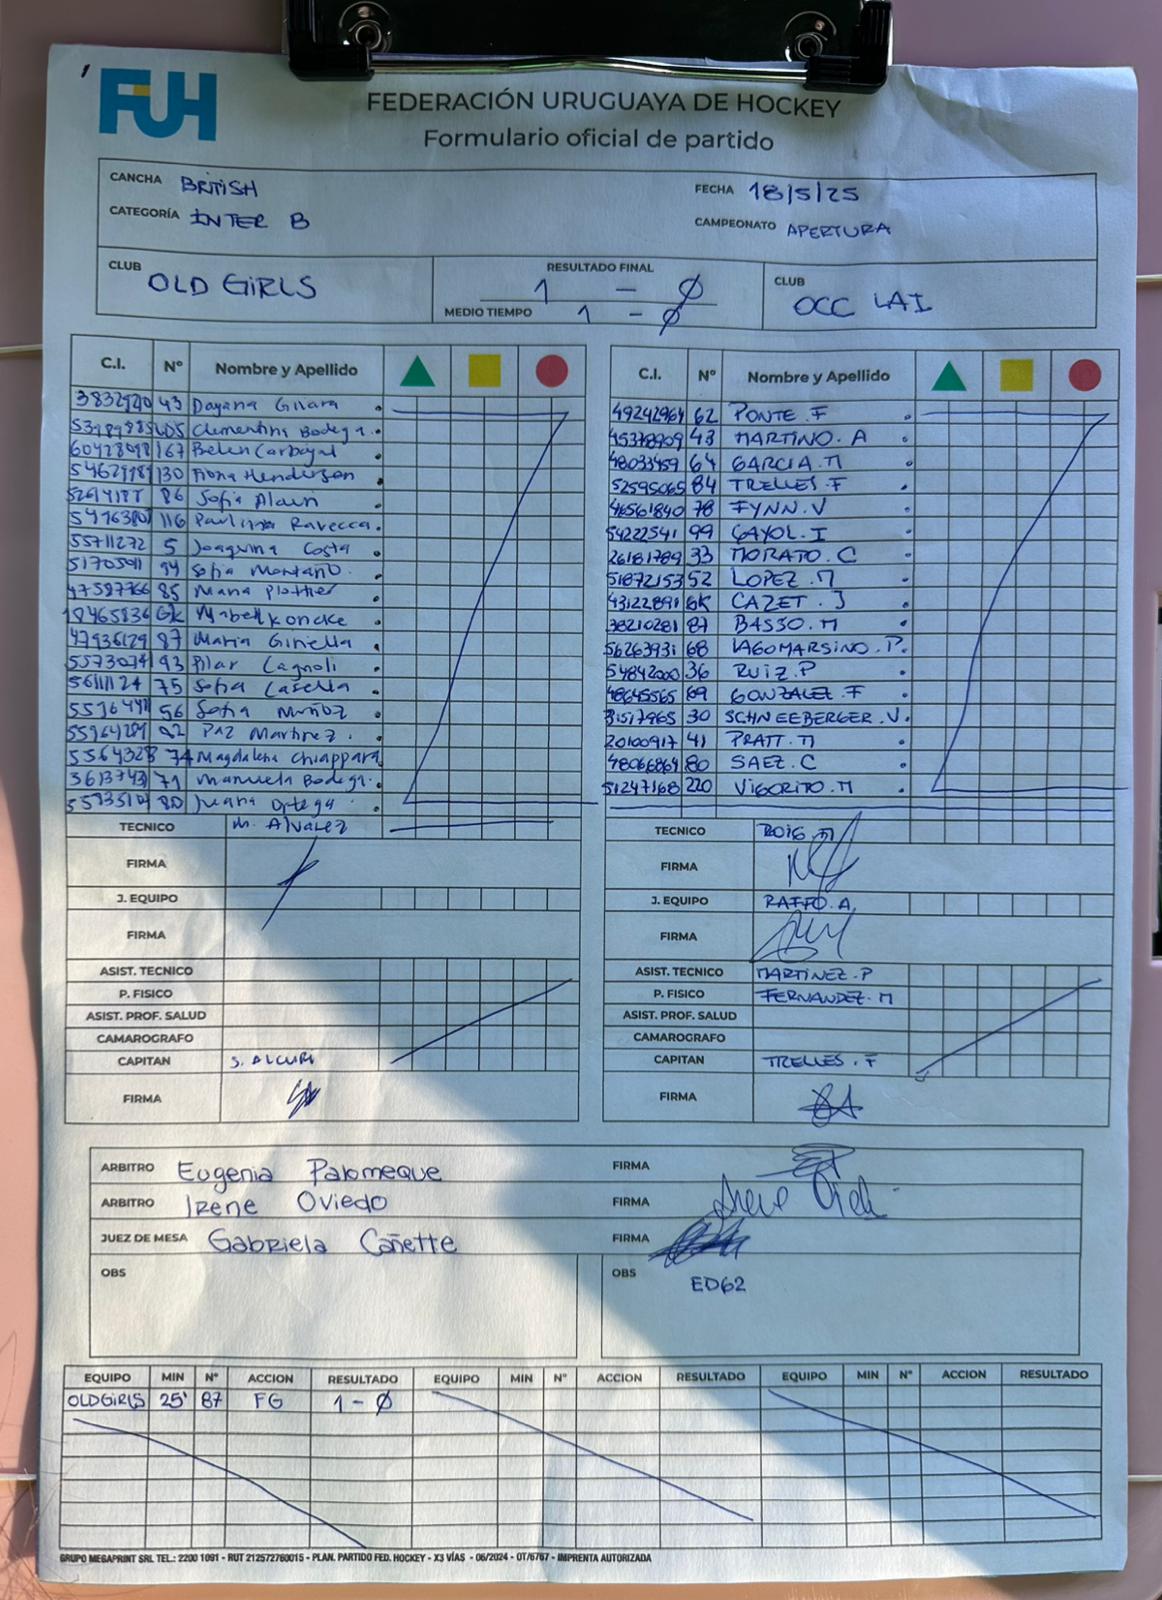 FUH
FEDERACIÓN URUGUAYA DE HOCKEY
Formulario oficial de partido
CANCHA BRITISH
FECHA 18/5/25
CATEGORÍA INTER B
CAMPEONATO APERTURA
CLUB OLD GIRLS
RESULTADO FINAL 1 - Ø
MEDIO TIEMPO 1 - Ø
CLUB OCC LAI
C.I. Nº Nombre y Apellido
43 Dayana Givara
Clementina Bodega.
167 Belen Carbajal
130 Fiona Henderson
86 Sofia Alaun
116 Paulina Ravecca.
55711272 5 Joaquina Costa
94 Sofia Montaño.
47597766 85 Maria Plottier
GK Mabel Koncke
47936129 87 Maria Giniella
93 Pilar Cagnoli
75 Sofia Casella
56 Sofia Muñoz
Paz Martinez.
74 Magdalena Chiappara
71 Manuela Bodega.
80 Juana Ortega
TECNICO M. Alvarez
FIRMA
J. EQUIPO
FIRMA
ASIST. TECNICO
P. FISICO
ASIST. PROF. SALUD
CAMAROGRAFO
CAPITAN S. ALCURI
FIRMA
C.I. Nº Nombre y Apellido
49242964 62 PONTE. F
45378909 43 MARTINO. A
48033459 64 GARCIA. M
52595065 84 TRELLES. F
46561840 78 FYNN. V
54222541 99 GAYOL. I
26181789 33 MORATO. C
51872153 52 LOPEZ. M
43122891 GK CAZET. J
38210281 87 BASSO. M
56263931 68 LAGOMARSINO. P.
54842000 36 RUIZ. P
48645565 69 GONZALEZ. F
31517965 30 SCHNEEBERGER. V.
20100917 41 PRATT. M
48066864 80 SAEZ. C
51247168 220 VIGORITO. M
TECNICO ROIG. M
FIRMA
J. EQUIPO RAFFO. A.
FIRMA
ASIST. TECNICO MARTINEZ. P
P. FISICO FERNANDEZ. M
ASIST. PROF. SALUD
CAMAROGRAFO
CAPITAN TRELLES. F
FIRMA
ARBITRO Eugenia Palomeque FIRMA
ARBITRO Irene Oviedo FIRMA
JUEZ DE MESA Gabriela Cañette FIRMA
OBS
OBS ED62
EQUIPO MIN Nº ACCION RESULTADO EQUIPO MIN Nº ACCION RESULTADO EQUIPO MIN Nº ACCION RESULTADO
OLDGIRLS 25' 87 FG 1 - Ø
GRUPO MEGAPRINT SRL TEL.: 2200 1091 - RUT 212572760015 - PLAN. PARTIDO FED. HOCKEY - X3 VÍAS - 06/2024 - OT/6767 - IMPRENTA AUTORIZADA